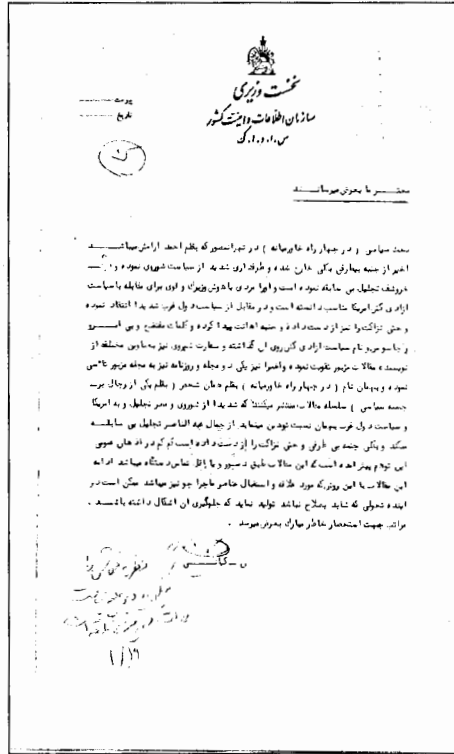 نخست وزیری
سازمان اطلاعات و امنیت کشور
س.ا.و.ا.ک
پیوست
تاریخ
محترما بعرض میرساند
بحث سیاسی ( در چهار راه خاورمیانه ) در تهرانمصور که بقلم احمد آرامش میباشد
اخیر از جنبه بیطرفی بکلی خارج شده و طرفداری شدید از سیاست شوروی نموده و از
خروشف تجلیل بی سابقه نموده است و اورا مردی با هوش وزیرک و قوی برای مقابله با سیاست
آزادی کش امریکا مناسب دانسته است و در مقابل از سیاست دول غرب شدیدا انتقاد نموده
و حتی نزاکت را نیز از دست داده و جنبه اهانت پیدا کرده و کلمات مفتضح و بی آبرو
و جاسوس و نام سیاست آزادی کش روی آن گذاشته و سفارت شوروی نیز به عناوین مختلف از
نویسنده مقالات مزبور تقویت نموده و اخیرا نیز یکی دو مجله و روزنامه نیز به مجله مزبور تاسی
نموده و بهمان نام ( در چهار راه خاورمیانه ) بقلم همان شخص ( بقلم یکی از رجال برجسته
سیاسی ) سلسله مقالات منتشر میکنند که شدیدا از شوروی و مصر تجلیل و به امریکا
و سیاست دول غرب بهمان نسبت توهین مینماید از جمال عبدالناصر تجلیل بی سابقه
میکند و بکلی جنبه بی طرفی و حتی نزاکت را از دست داده است کم کم در اذهان عمومی
این توهم پیش آمده است که این مقالات طبق دستور و یا لااقل تماس دستگاه میباشد ادامه
این مقالات با این روش که مورد علاقه و استقبال عناصر ماجراجو نیز میباشد ممکن است در
آینده تحولی که شاید بصلاح نباشد تولید نماید که جلوگیری آن اشکال داشته باشد .
مراتب جهت استحضار خاطر مبارک بعرض میرسد .